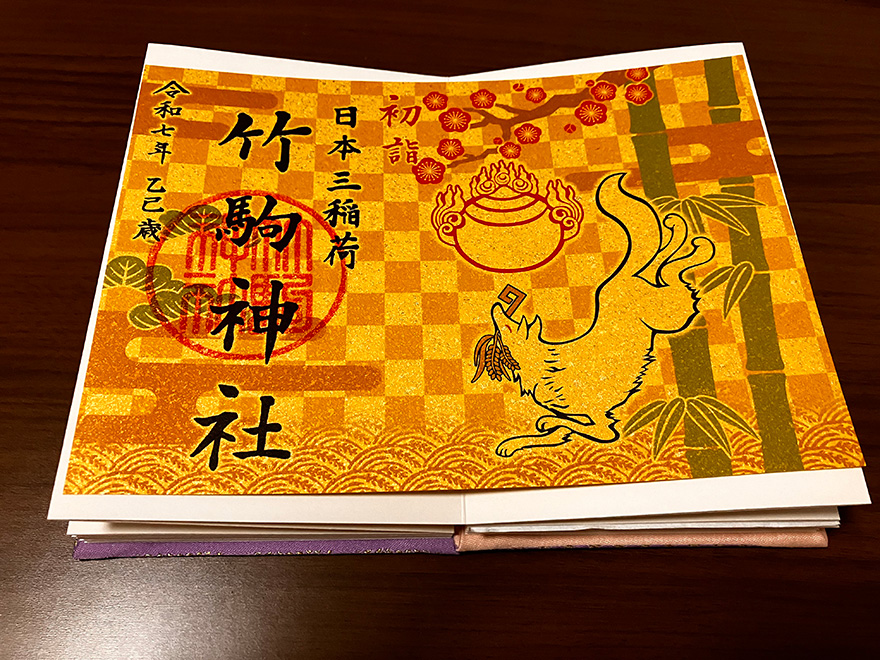 初詣
日本三稲荷
竹駒神社
令和七年 乙巳歳